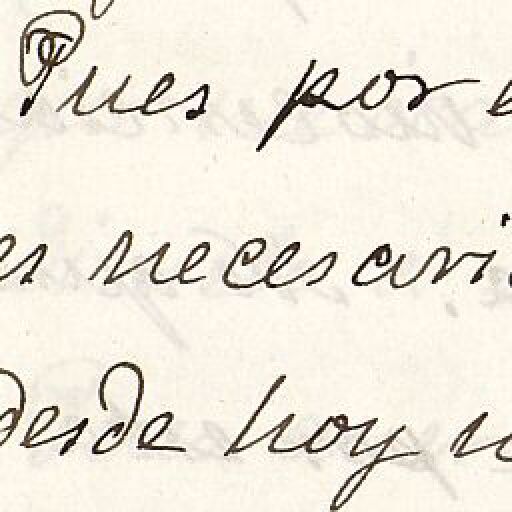 Pues por e
es necesari
desde hoy